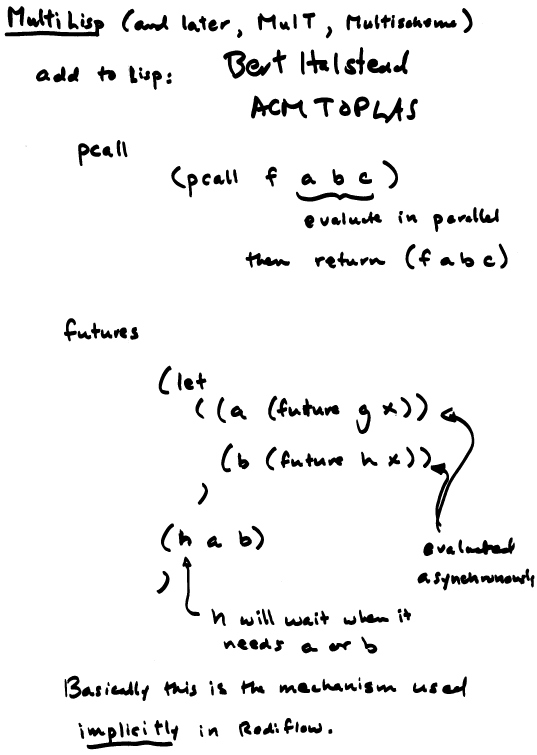 MultiLisp (and later, MulT, Multischeme)
add to Lisp: Bert Halstead
ACM TOPLAS
pcall
(pcall f a b c)
evaluate in parallel
then return (f a b c)
futures
(let
((a (future g x))
(b (future h x))
)
(h a b)
)
evaluated
asynchronously
h will wait when it
needs a or b
Basically this is the mechanism used
implicitly in Rediflow.